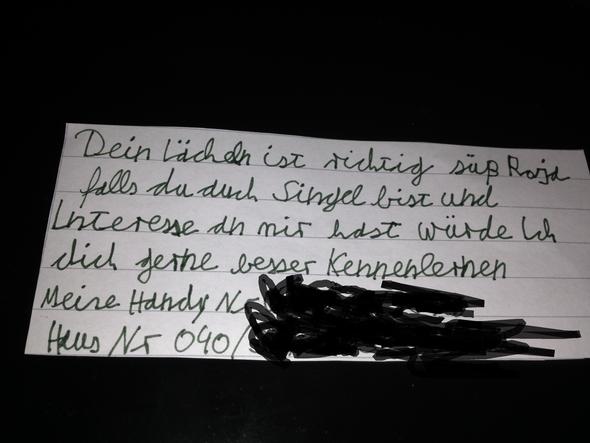 Dein Lächeln ist richtig süß Rojda
falls du auch Singel bist und
Interesse an mir hast würde Ich
dich gerne besser Kennenlernen
Meine Handy Nr
Haus Nr 040/